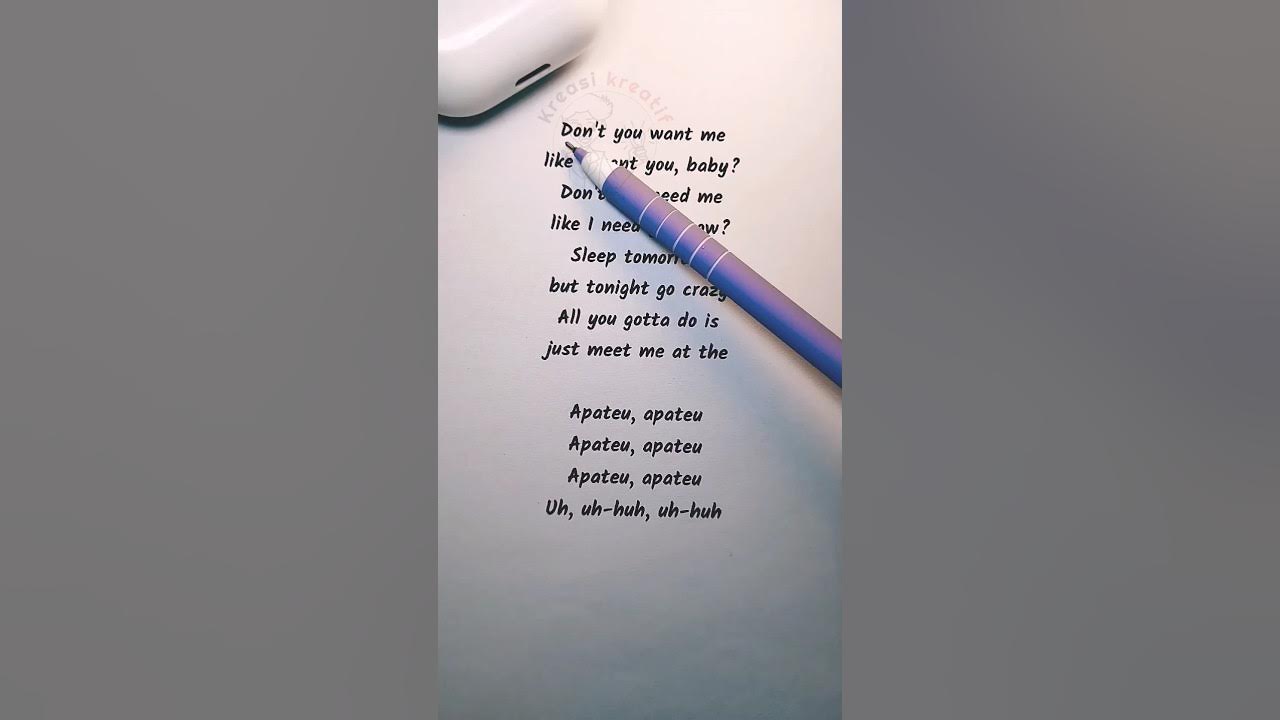 Kreasi kreatif
Don't you want me
like want you, baby?
Don't need me
like I need
Sleep
but tonight go crazy
All you gotta do is
just meet me at the
Apateu, apateu
Apateu, apateu
Apateu, apateu
Uh, uh-huh, uh-huh